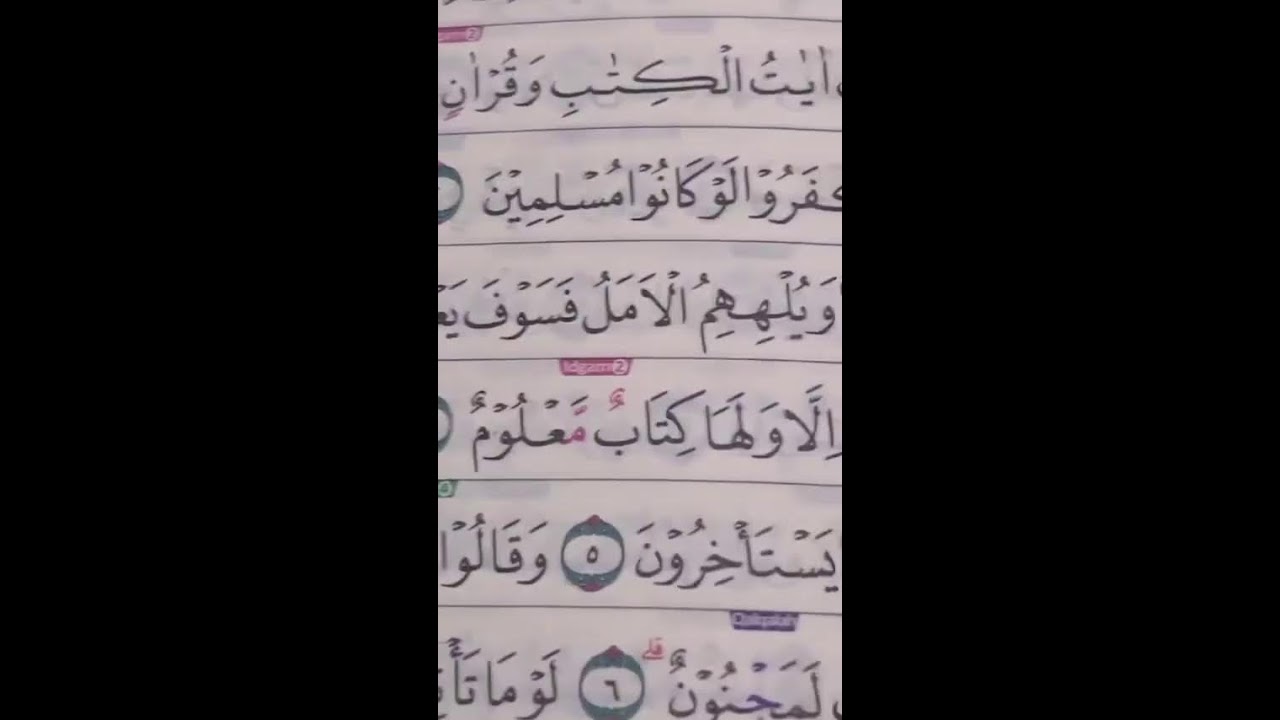 Idgam 2
اٰيٰتُ الۡـكِتٰبِ وَقُرۡاٰنٍ
كَفَرُوۡا لَوۡ كَانُوۡا مُسۡلِمِيۡنَ
وَيُلۡهِهِمُ الۡاَمَلُ فَسَوۡفَ
Idgam 2
اِلَّا وَلَهَا كِتَابٌ مَّعۡلُوۡمٌ
يَسۡتَاۡخِرُوۡنَ ٥ وَقَالُوۡا
Qalqalah
لَمَجۡنُوۡنٌ ؕ ٦ لَوۡ مَا